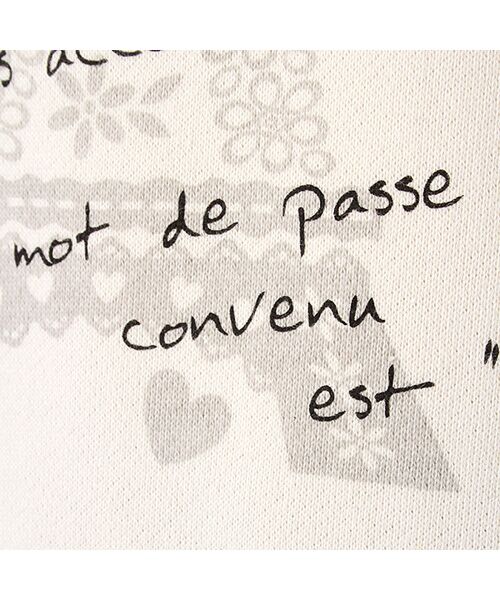 mot de passe
convenu
est "